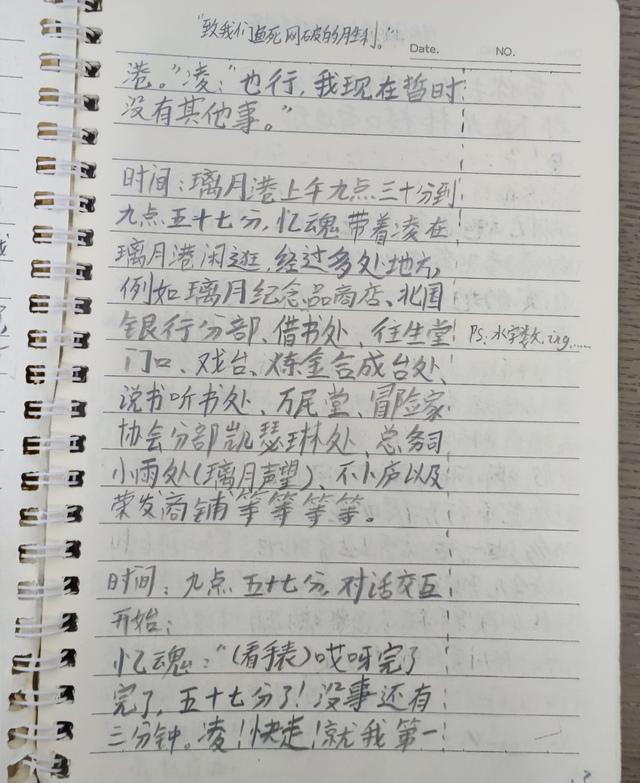 "致我们鱼死网破的胜利。"
Date. NO.
港。"凌:"也行,我现在暂时
没有其他事。"
时间:璃月港上午九点三十分到
九点五十七分,忆魂带着凌在
璃月港闲逛,经过多处地方,
例如璃月纪念品商店、北国
银行分部、借书处、往生堂
PS:水字数ing......
门口、戏台、炼金合成台处、
说书听书处、万民堂、冒险家
协会分部凯瑟琳处、总务司
小雨处(璃月声望)、不卜庐以及
荣发商铺等等等等。
时间:九点五十七分,对话交互
开始:
忆魂:"(看手表)哎呀完了
完了,五十七分了!没事还有
三分钟。凌!快走!就我第一